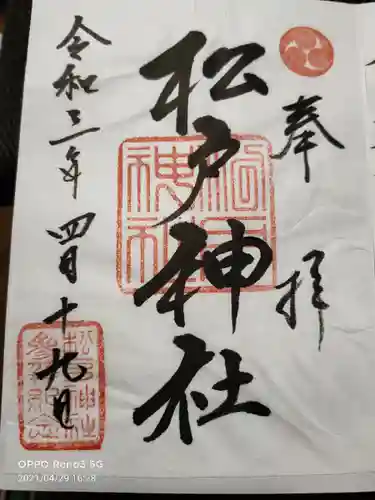 奉拝
松戸神社
令和三年四月十九日
松戸神社
OPPO Reno3 5G
2021/04/29 16:28